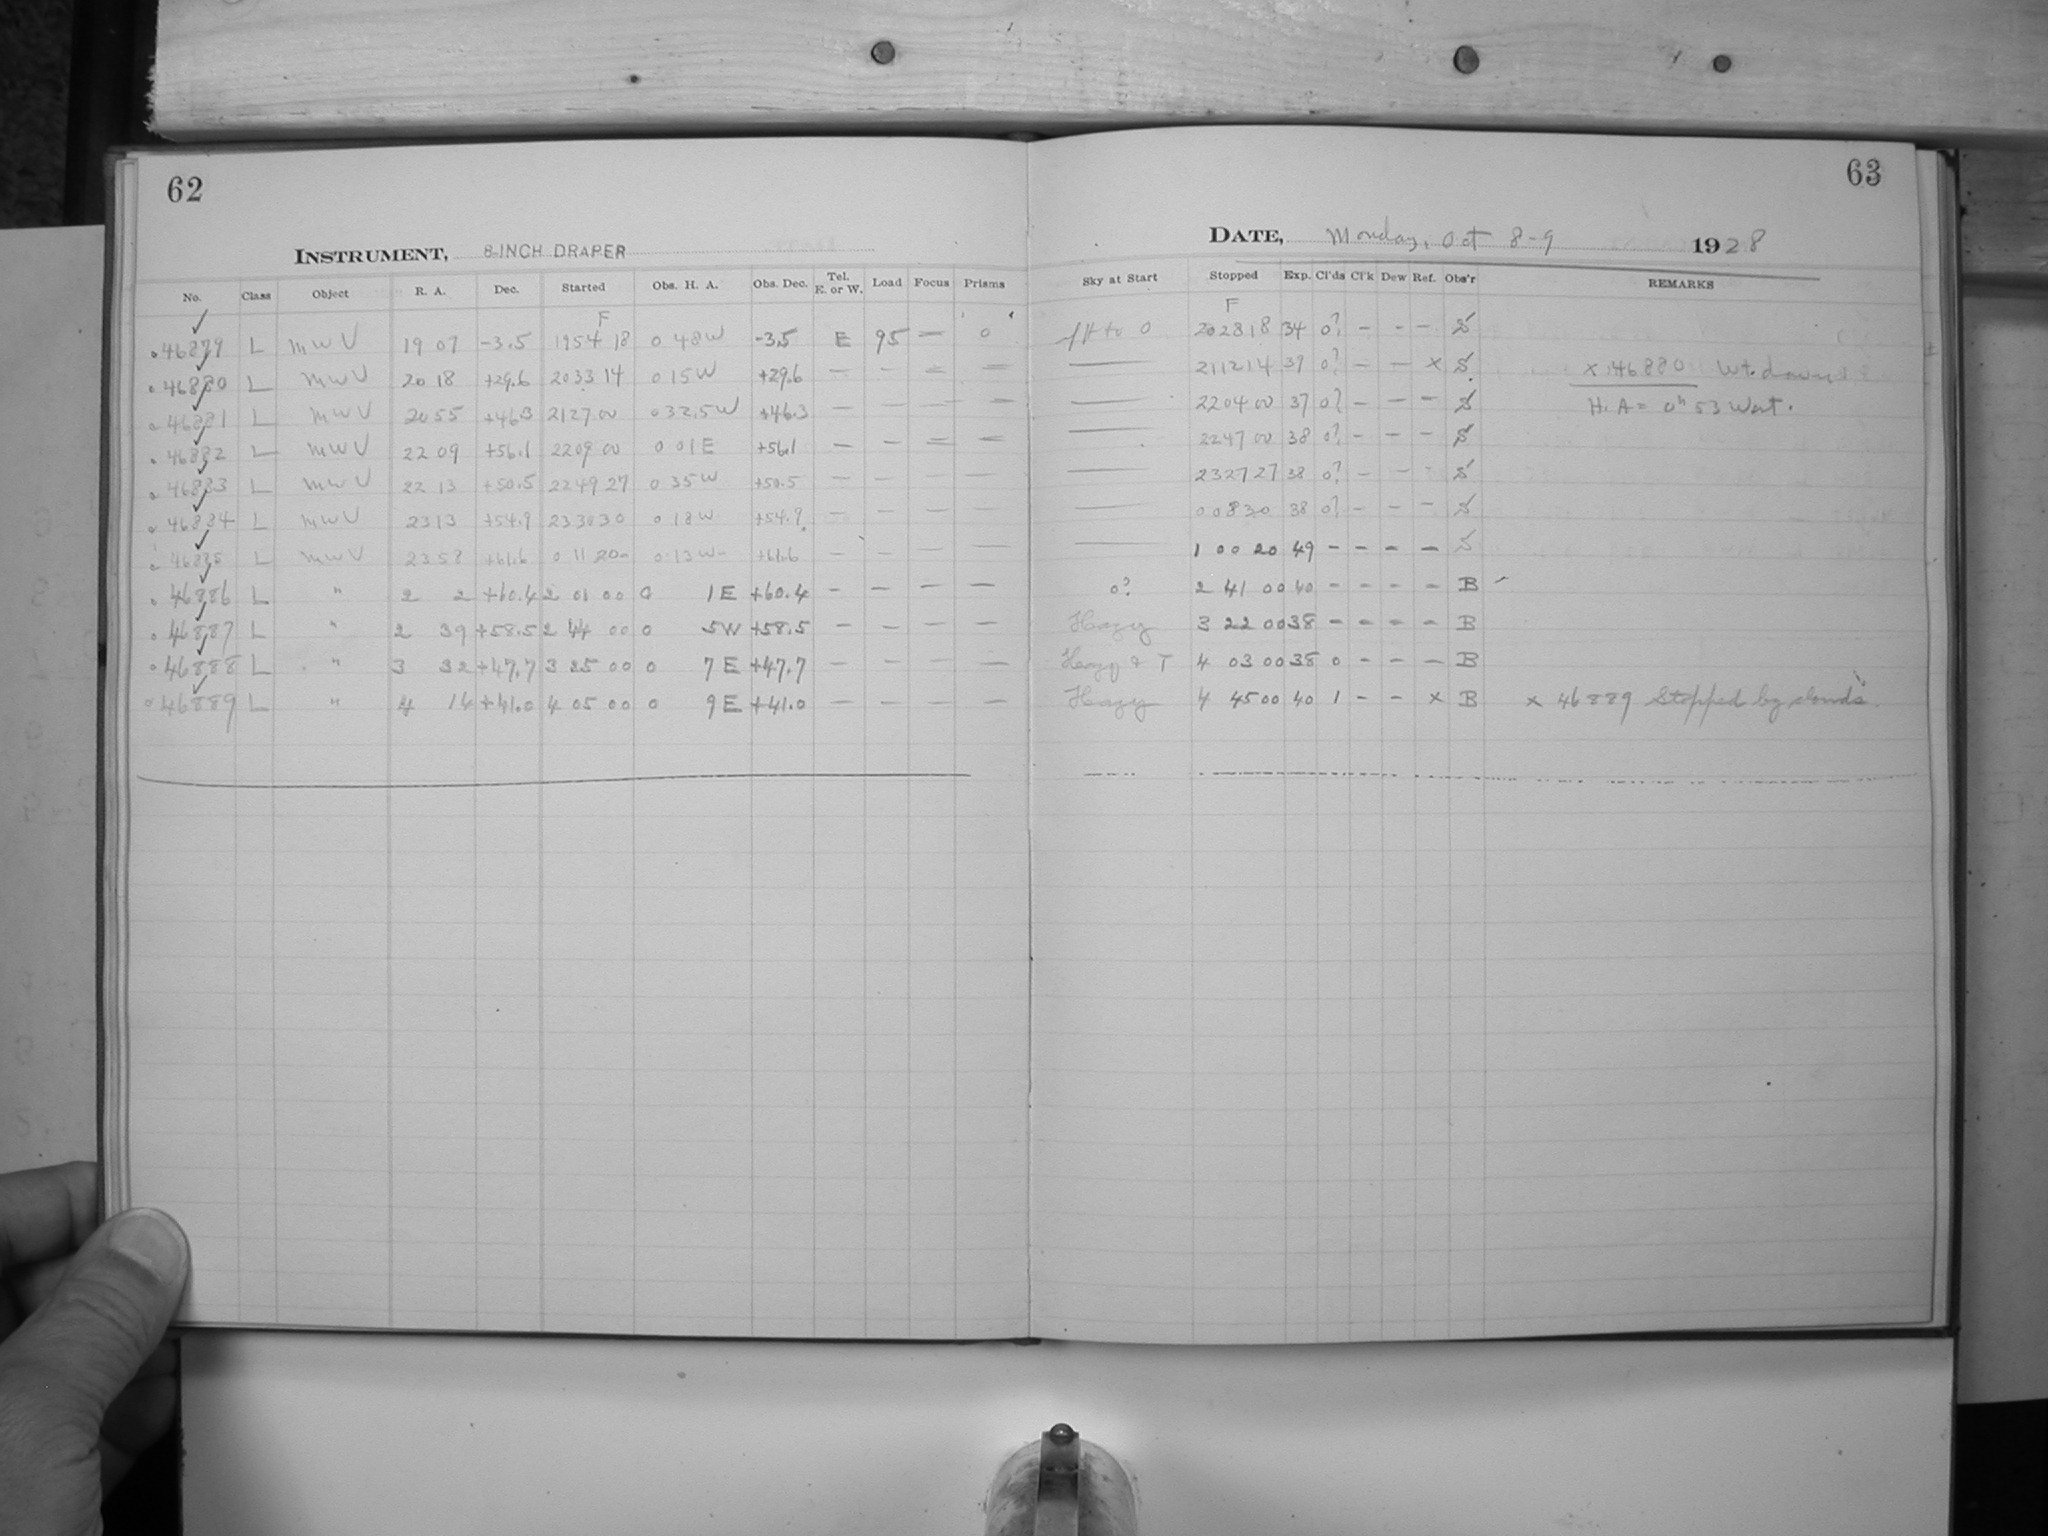 62
INSTRUMENT, 8-INCH DRAPER
No. Class Object R. A. Dec. Started Obs. H. A. Obs. Dec. Tel. E. or W. Load Focus Prisms
F
46879 L MWV 19 07 -3.5 19 54 18 0 48 W -3.5 E 95 — 0
46880 L MWV 20 18 +29.6 20 33 14 0 15 W +29.6 — — — —
46881 L MWV 20 55 +46.3 21 27 00 0 32.5 W +46.3 — — — —
46882 L MWV 22 09 +56.1 22 09 00 0 01 E +56.1 — — — —
46883 L MWV 22 13 +50.5 22 49 27 0 35 W +50.5 — — — —
46884 L MWV 23 13 +54.9 23 30 30 0 18 W +54.9 — — — —
46885 L MWV 23 58 +61.6 0 11 20 0 13 W +61.6 — — — —
46886 L " 2 2 +60.4 2 01 00 0 1 E +60.4 — — — —
46887 L " 2 39 +58.5 2 44 00 0 5 W +58.5 — — — —
46888 L " 3 32 +47.7 3 25 00 0 7 E +47.7 — — — —
46889 L " 4 14 +41.0 4 05 00 0 9 E +41.0 — — — —
63
DATE, Monday, Oct 8-9 1928
Sky at Start Stopped Exp. Cl'ds Cl'k Dew Ref. Obs'r REMARKS
F
to 0 20 28 18 34 0? — — — S
— 21 12 14 39 0? — — x S x 46880 Wt. down
— 22 04 00 37 0? — — — S H. A = 0h 53 West.
— 22 47 00 38 0? — — — S
— 23 27 27 38 0? — — — S
— 0 08 30 38 0? — — — S
— 1 00 20 49 — — — — S
0? 2 41 00 40 — — — — B
Hazy 3 22 00 38 — — — — B
Hazy & T 4 03 00 38 0 — — — B
Hazy 4 45 00 40 1 — — x B x 46889 Stopped by clouds.